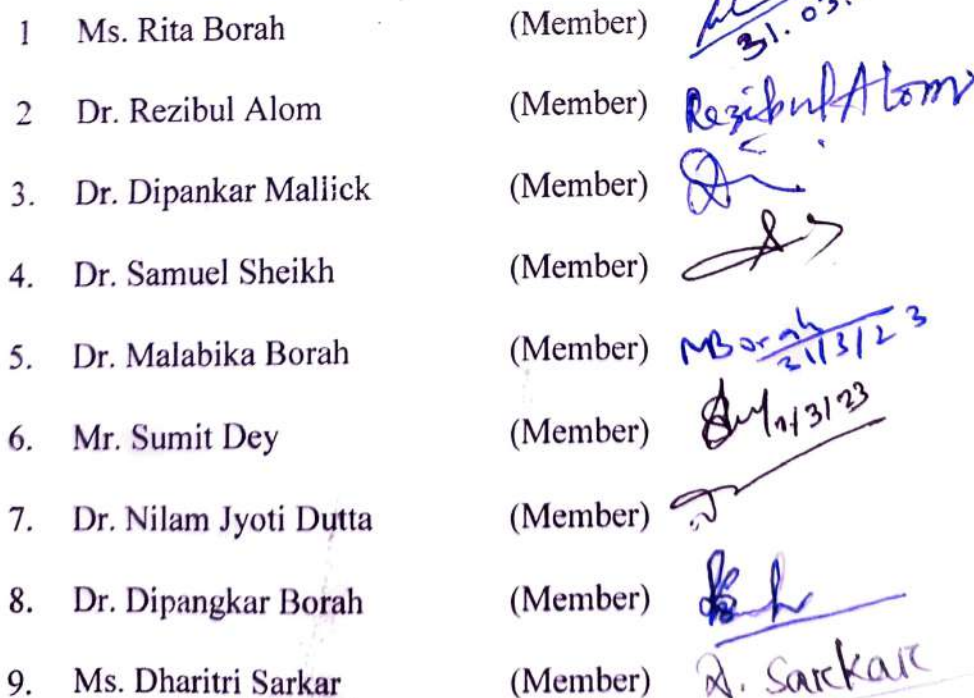 1 Ms. Rita Borah (Member) 31.03.
2 Dr. Rezibul Alom (Member) Rezibul Alom
3. Dr. Dipankar Mallick (Member)
4. Dr. Samuel Sheikh (Member)
5. Dr. Malabika Borah (Member) MBorah 31/3/23
6. Mr. Sumit Dey (Member)
7. Dr. Nilam Jyoti Dutta (Member)
8. Dr. Dipangkar Borah (Member)
9. Ms. Dharitri Sarkar (Member) D. Sarkar